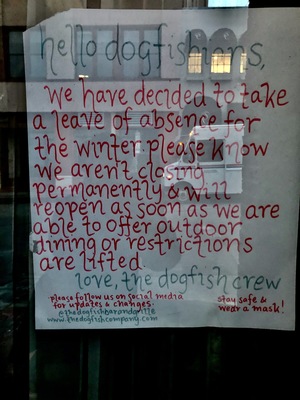 hello dogfishions,
we have decided to take
a leave of absence for
the winter. please know
we aren't closing
permanently & will
reopen as soon as we are
able to offer outdoor
dining or restrictions
are lifted.
love, the dogfish crew
please follow us on social media
for updates & changes.
@thedogfishbarandgrille
www.thedogfishcompany.com
stay safe &
wear a mask!